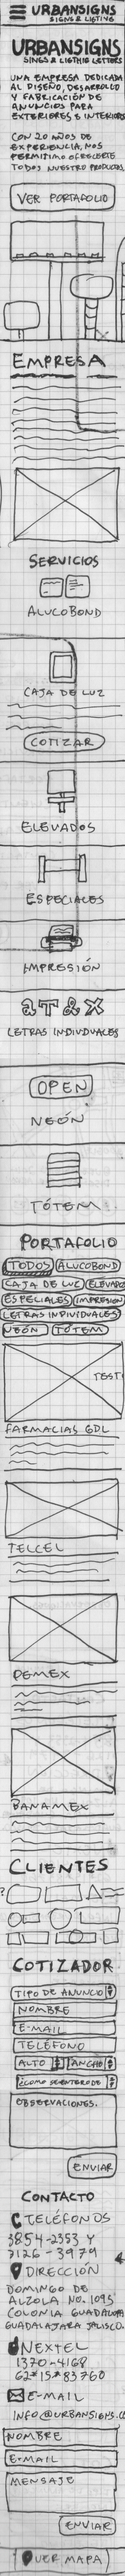 URBANSIGNS
SIGNS & LIGTING
URBANSIGNS
SINGS & LIGTHIG LETTERS
UNA EMPRESA DEDICADA
AL DISEÑO, DESARROLLO
Y FABRICACIÓN DE
ANUNCIOS PARA
EXTERIORES E INTERIORES
CON 20 AÑOS DE
EXPERIENCIA, NOS
PERMITIMO OFRECERTE
TODOS NUESTRO PRODUCTOS
VER PORTAFOLIO
EMPRESA
SERVICIOS
ALUCOBOND
CAJA DE LUZ
COTIZAR
ELEVADOS
ESPECIALES
IMPRESIÓN
a T & X
LETRAS INDIVIDUALES
OPEN
NEÓN
TÓTEM
PORTAFOLIO
TODOS ALUCOBOND
CAJA DE LUZ ELEVADO
ESPECIALES IMPRESION
LETRAS INDIVIDUALES
NEÓN TÓTEM
TEST
FARMACIAS GDL
TELCEL
PEMEX
BANAMEX
CLIENTES
COTIZADOR
TIPO DE ANUNCIO
NOMBRE
E-MAIL
TELÉFONO
ALTO ANCHO
¿COMO SE ENTERO DE
OBSERVACIONES.
ENVIAR
CONTACTO
TELÉFONOS
3854-2353 Y
3126-3979
DIRECCIÓN
DOMINGO DE
ALZOLA No. 1095
COLONIA GUADALUPA
GUADALAJARA JALISCO.
NEXTEL
1370-4168
62*15*83760
E-MAIL
INFO@URBANSIGNS.CO
NOMBRE
E-MAIL
MENSAJE
ENVIAR
VER MAPA